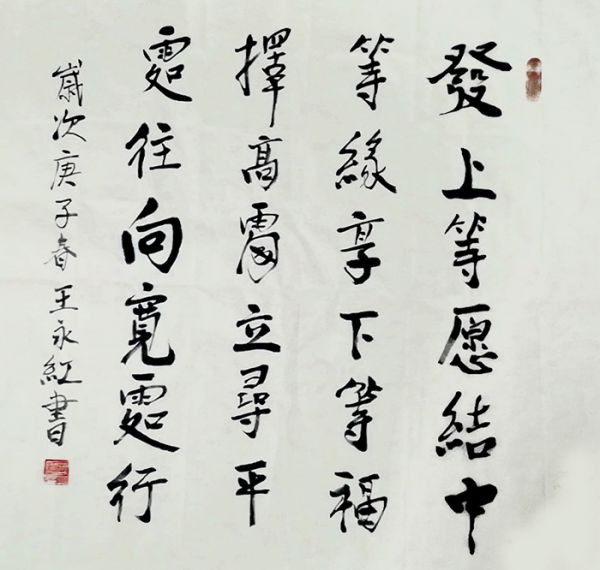 發上等愿結中
等緣享下等福
擇高處立尋平
處往向寬處行
歲次庚子春王永紅書